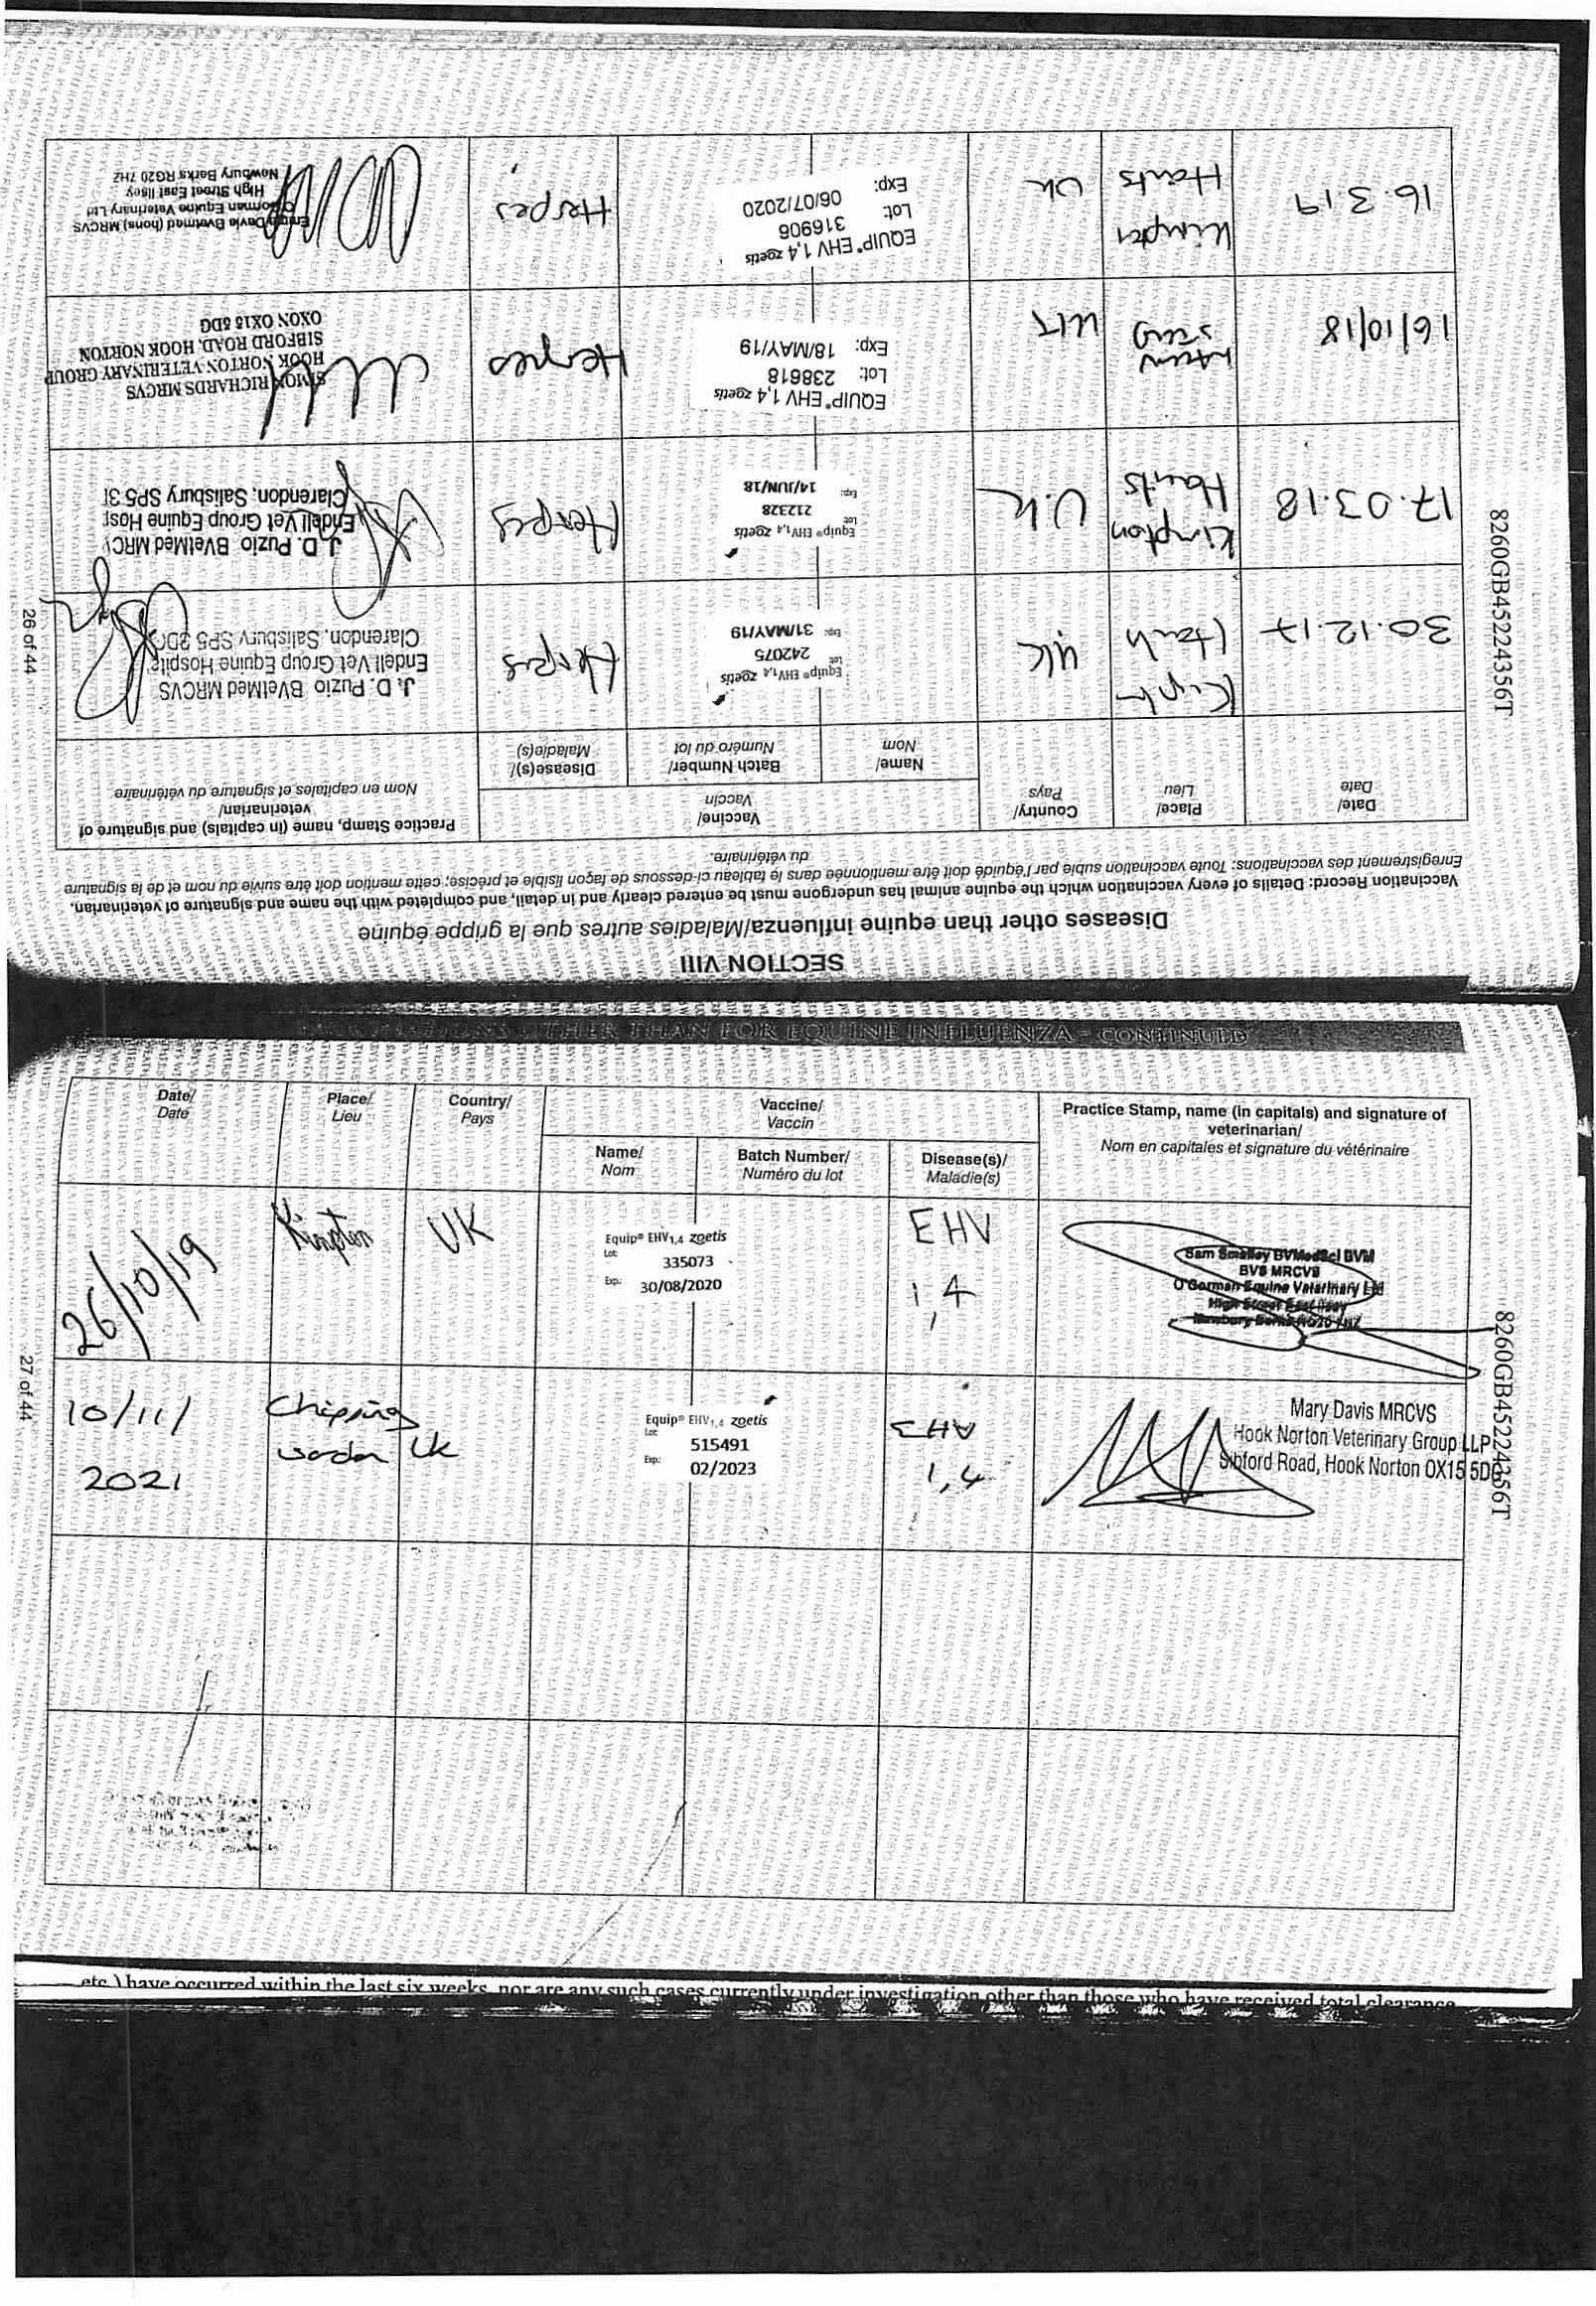 SECTION VIII
Diseases other than equine influenza/Maladies autres que la grippe équine
Vaccination Record: Details of every vaccination which the equine animal has undergone must be entered clearly and in detail, and completed with the name and signature of veterinarian.
Enregistrement des vaccinations: Toute vaccination subie par l'équidé doit être mentionnée dans le tableau ci-dessous de façon lisible et précise; cette mention doit être suivie du nom et de la signature
du vétérinaire.
Date/
Date
Place/
Lieu
Country/
Pays
Vaccine/
Vaccin
Name/
Nom
Batch Number/
Numéro du lot
Disease(s)/
Maladie(s)
Practice Stamp, name (in capitals) and signature of
veterinarian/
Nom en capitales et signature du vétérinaire
30.12.17
UK
Equip® EHV1,4 zoetis
Lot
242075
Exp: 31/MAY/19
Herpes
J. D. Puzio BVetMed MRCVS
Endell Vet Group Equine Hospita
Clarendon, Salisbury SP5 3DG
17.03.18
Kimpton
Hants
U.K
Equip® EHV1,4 zoetis
Lot
212328
Exp:
14/JUN/18
Herpes
J. D. Puzio BVetMed MRCV
Endell Vet Group Equine Hosp
Clarendon, Salisbury SP5 3
16/10/18
EQUIP® EHV 1,4 zoetis
Lot: 238618
Exp: 18/MAY/19
Herpes
SIMON RICHARDS MRCVS
HOOK NORTON VETERINARY GROUP
SIBFORD ROAD, HOOK NORTON
OXON OX15 5DG
16.3.19
Hants
UK
EQUIP® EHV 1,4 zoetis
Lot: 316906
Exp: 06/07/2020
Herpes
Davie Bvetmed (hons) MRCVS
O'Gorman Equine Veterinary Ltd
High Street East Ilsey
Newbury Berks RG20 7HZ
26 of 44
8260GB45224356T
VACCINATIONS OTHER THAN FOR EQUINE INFLUENZA - CONTINUED
Date/
Date
Place/
Lieu
Country/
Pays
Vaccine/
Vaccin
Name/
Nom
Batch Number/
Numéro du lot
Disease(s)/
Maladie(s)
Practice Stamp, name (in capitals) and signature of
veterinarian/
Nom en capitales et signature du vétérinaire
26/10/19
Kimpton
UK
Equip® EHV1,4 zoetis
Lot:
335073
Exp: 30/08/2020
EHV
1,4
Sam Smalley BVMedSci BVM
BVS MRCVS
O'Gorman Equine Veterinary Ltd
High Street East Ilsey
Newbury Berks RG20 7HZ
10/11/
2021
Chipping
Uk
Equip® EHV1,4 zoetis
Lot:
515491
Exp: 02/2023
1,4
Mary Davis MRCVS
Hook Norton Veterinary Group LLP
Sibford Road, Hook Norton OX15 5DG
27 of 44
8260GB45224356T
etc.) have occurred within the last six weeks, nor are any such cases currently under investigation other than those who have received total clearance